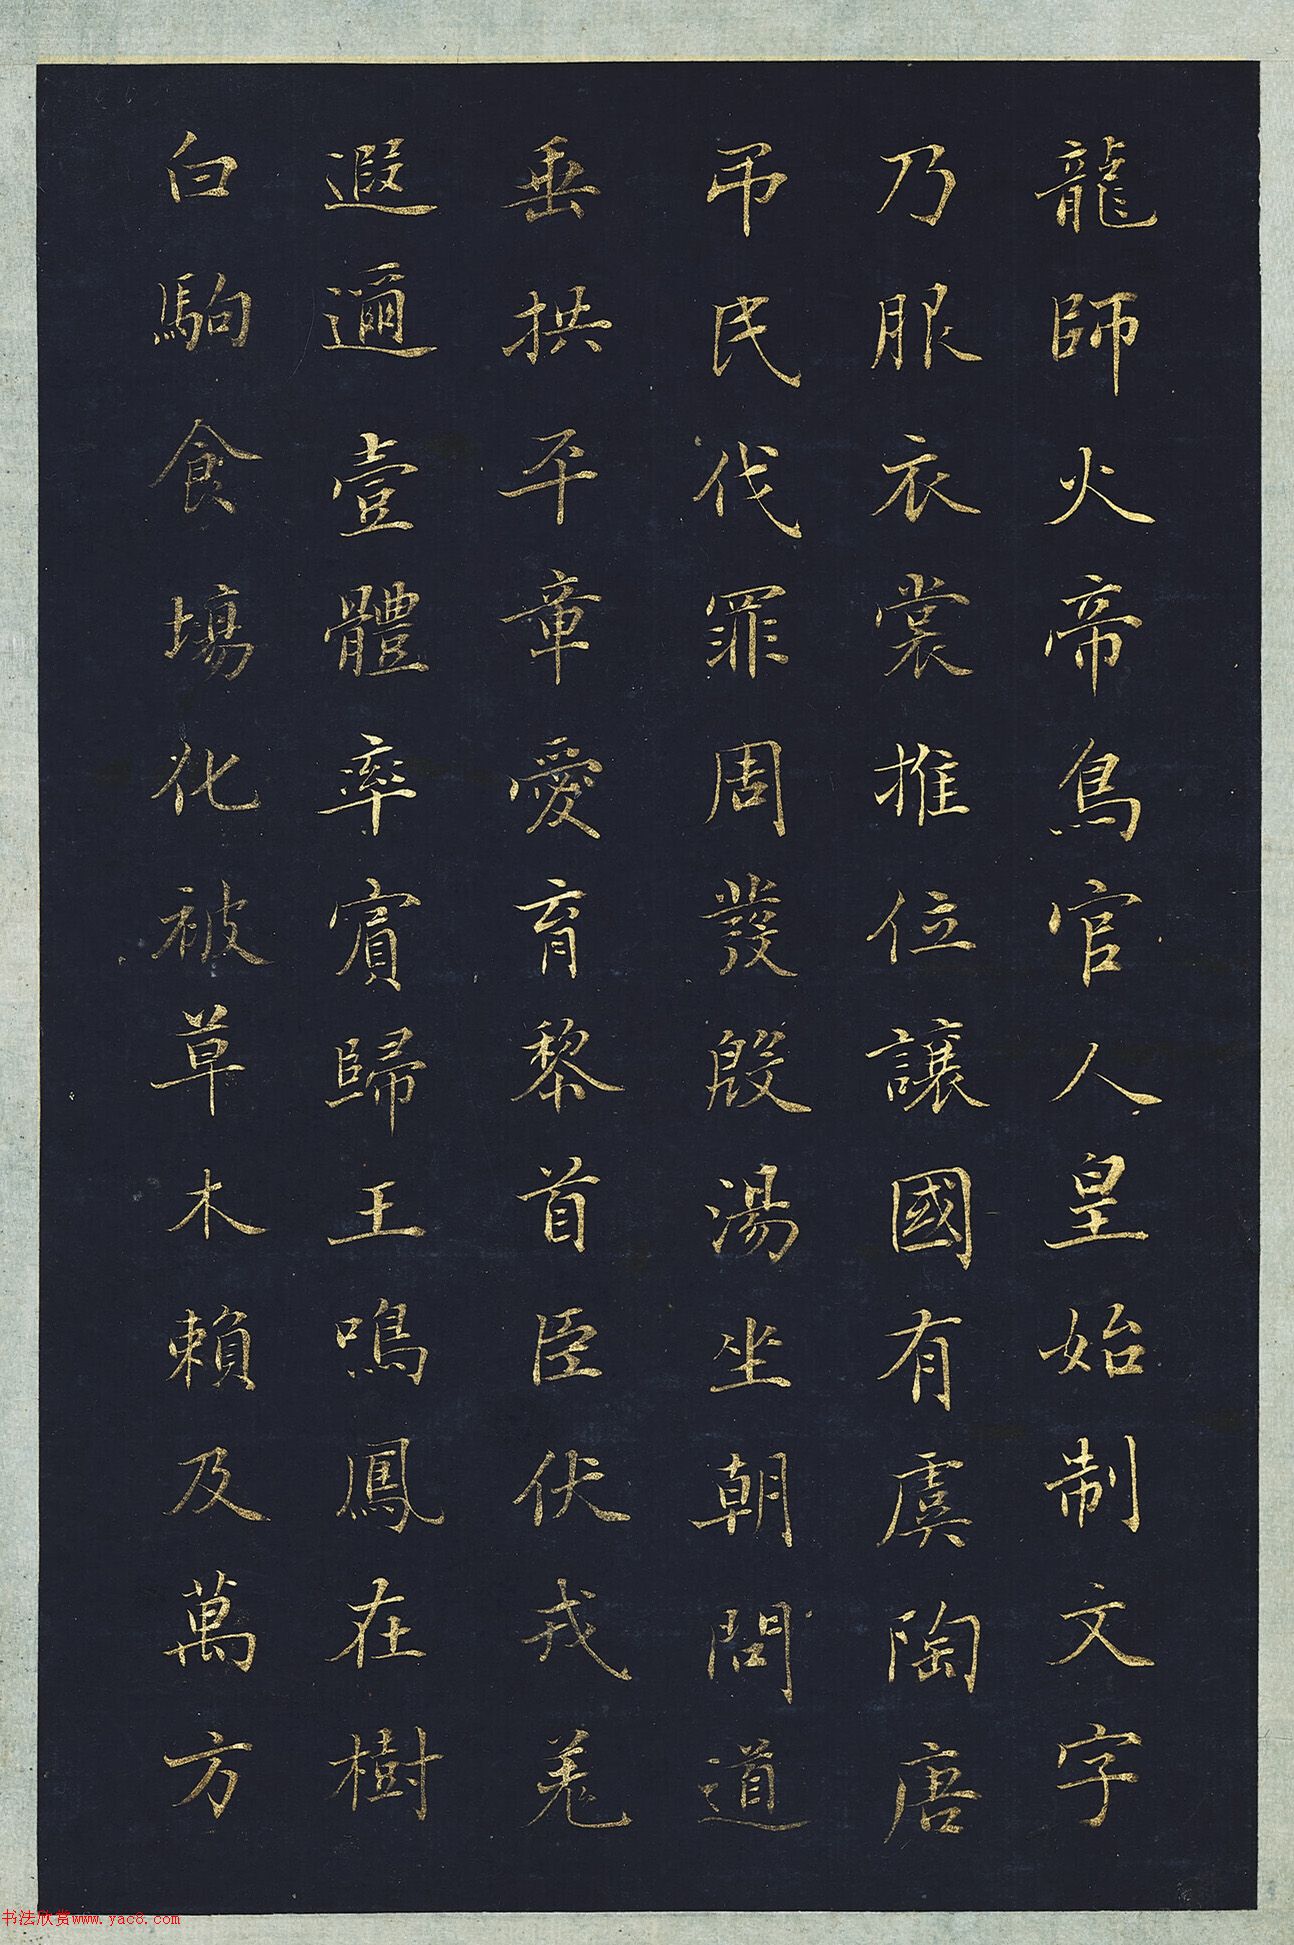 龍師火帝鳥官人皇始制文字
乃服衣裳推位讓國有虞陶唐
弔民伐罪周發殷湯坐朝問道
垂拱平章愛育黎首臣伏戎羌
遐邇壹體率賓歸王鳴鳳在樹
白駒食場化被草木賴及萬方
书法欣赏www.yac8.com